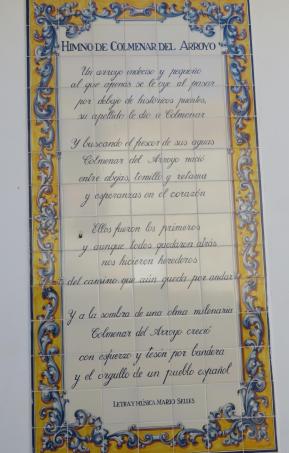 HIMNO DE COLMENAR DEL ARROYO
Un arroyo undoso y pequeño
al que apenas se le oye al pasar
por debajo de históricos puentes,
su apellido le dio a Colmenar
Y buscando el frescor de sus aguas
Colmenar del Arroyo nació
entre abejas, tomillo y retama
y esperanzas en el corazón
Ellos fueron los primeros
y aunque todos quedaron atrás
nos hicieron herederos
del camino que aún queda por andar
Y a la sombra de una olma milenaria
Colmenar del Arroyo creció
con esfuerzo y tesón por bandera
y el orgullo de un pueblo español
LETRA Y MÚSICA MARIO SELLES